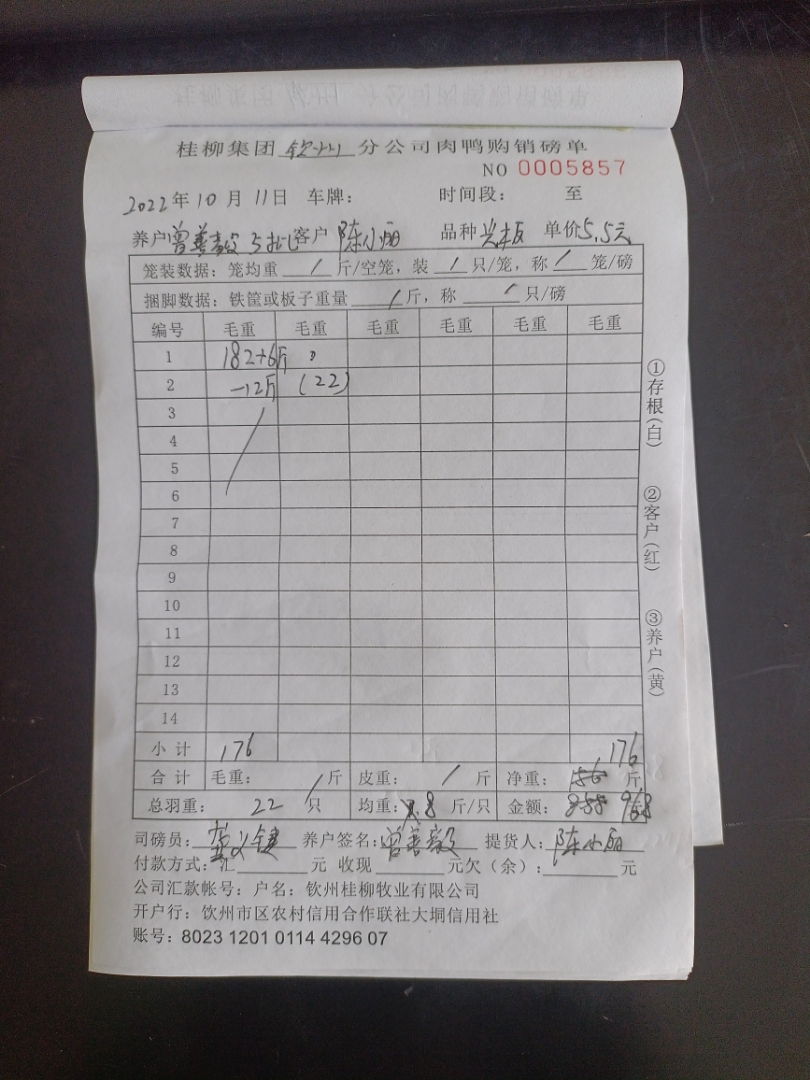 桂柳集团 钦州 分公司肉鸭购销磅单
NO 0005857
2022年10月11日 车牌： 时间段： 至
养户 曾善毅 客户 陈小丽 品种 单价5.5元
笼装数据：笼均重 / 斤/空笼，装 / 只/笼，称 / 笼/磅
捆脚数据：铁筐或板子重量 / 斤，称 / 只/磅
编号 毛重 毛重 毛重 毛重 毛重 毛重
1 182+6斤
2 -12斤 (22)
3
4
5
6
7
8
9
10
11
12
13
14
小计 176 176
合计 毛重： / 斤 皮重： / 斤 净重： 斤
总羽重： 22 只 均重： 8 斤/只 金额： 968
司磅员： 养户签名：曾善毅 提货人：陈小丽
付款方式：汇 元 收现 元欠（余）： 元
公司汇款帐号：户名：钦州桂柳牧业有限公司
开户行：钦州市区农村信用合作联社大垌信用社
账号：8023 1201 0114 4296 07
①存根(白)
②客户(红)
③养户(黄)